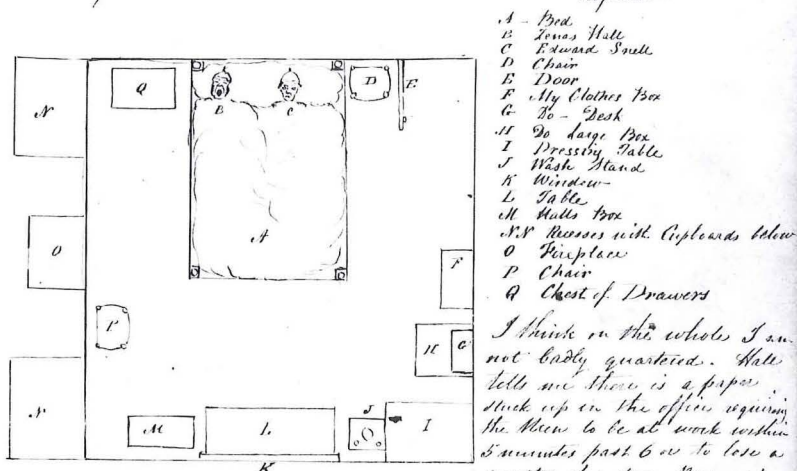 A - Bed
B Zenas Hall
C Edward Snell
D Chair
E Door
F My Clothes Box
G Do - Desk
H Do Large Box
I Dressing Table
J Wash Stand
K Window
L Table
M Halls Box
N.N Recesses with Cupboards below
O Fireplace
P Chair
Q Chest of Drawers
I think on the whole I am
not badly quartered. Hall
tells me there is a paper
stuck up in the office requiring
the Men to be at work within
5 minutes past 6 or to lose a
N
Q
B
C
D
E
A
O
F
P
H
G
N
M
L
J
I
K